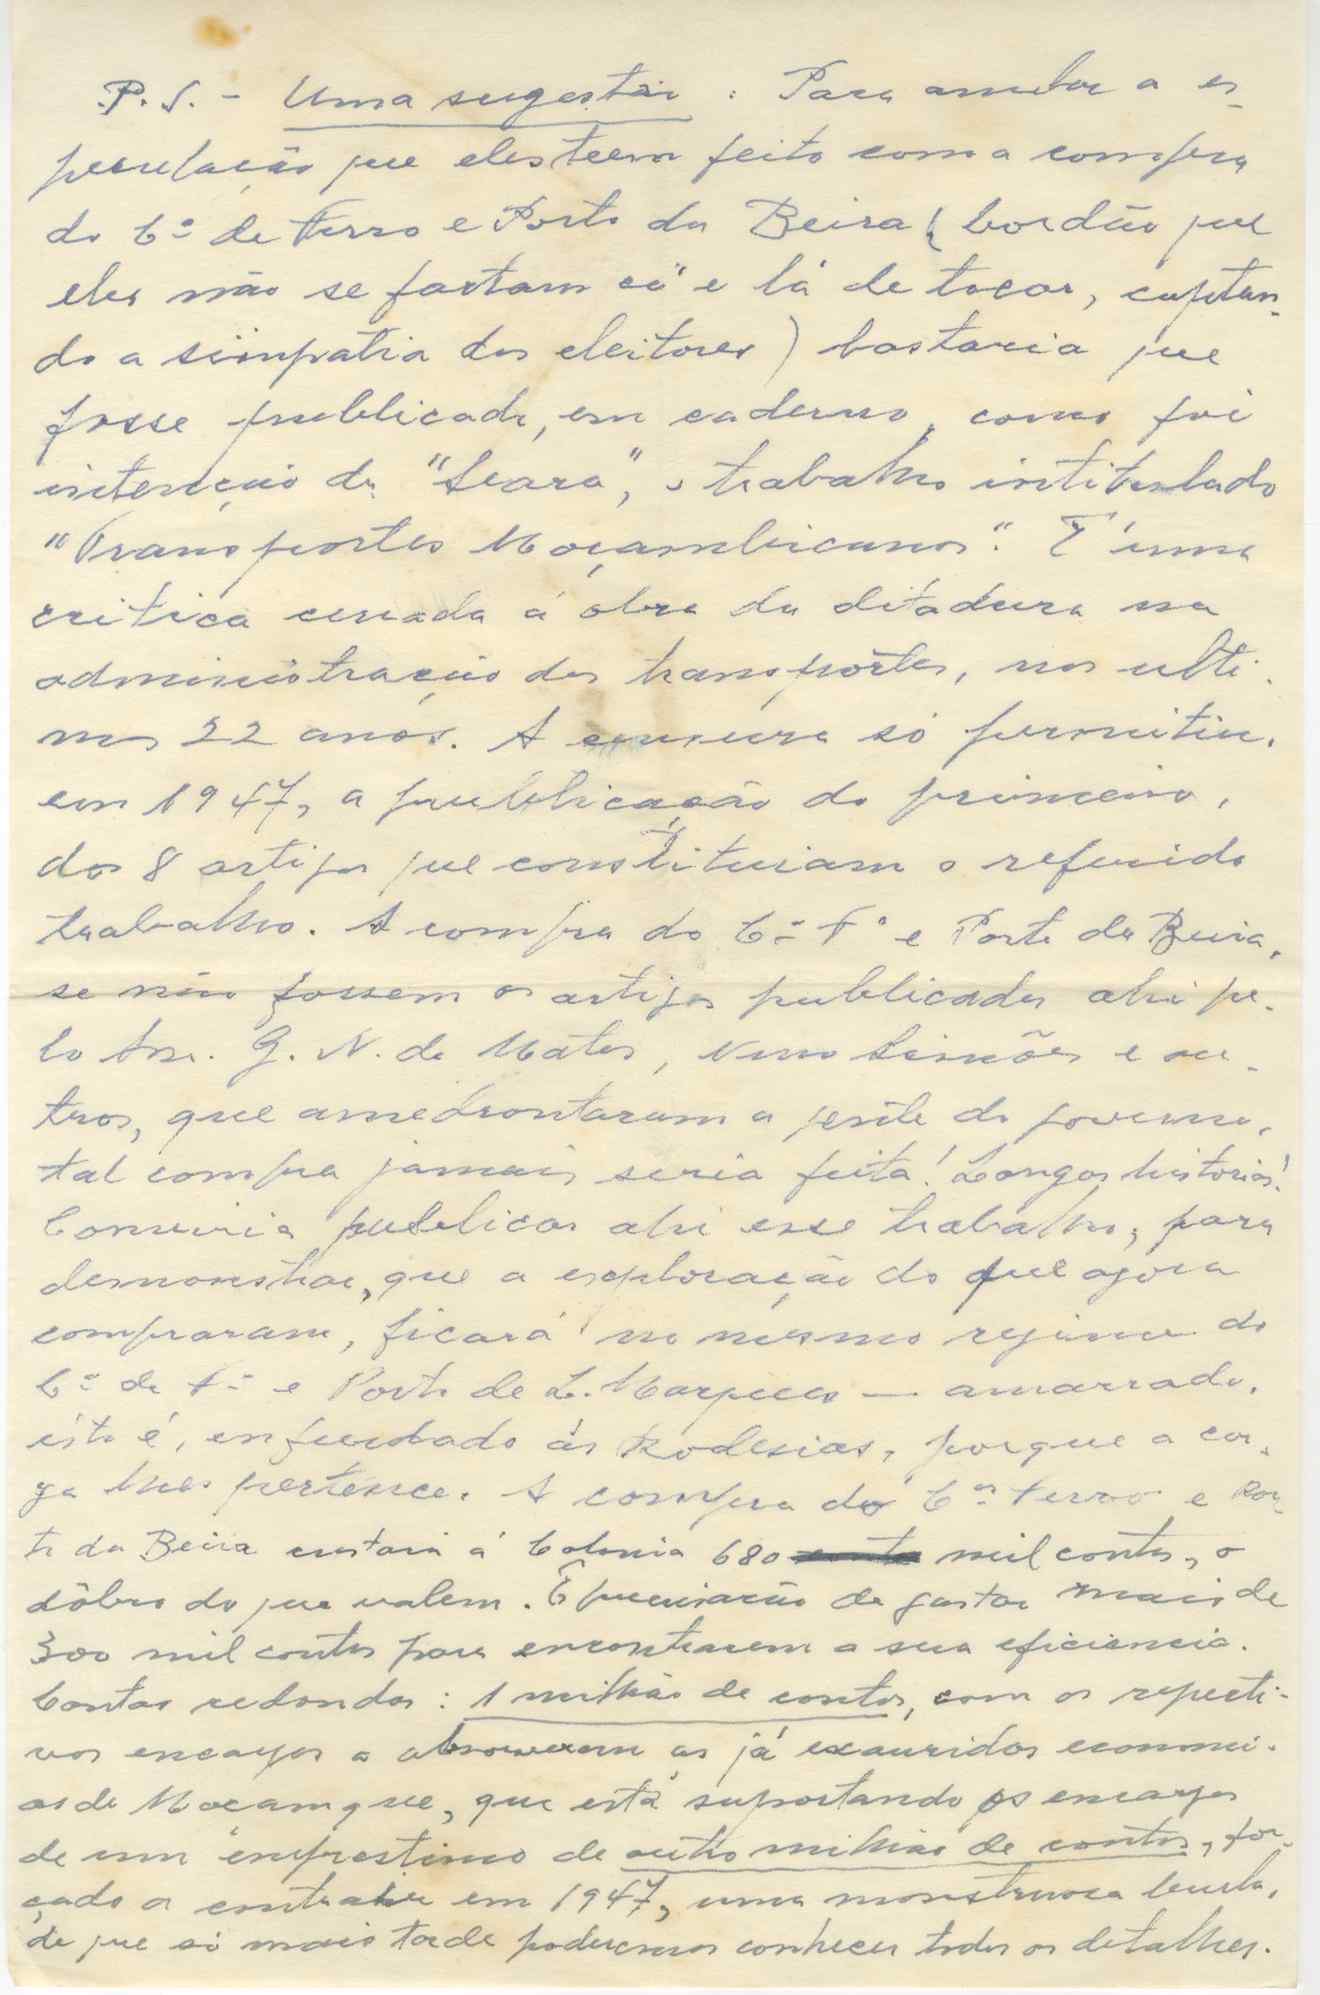 P.S. - Uma sugestão : Para anular a es-
peculação que eles teem feito com a compra
do C.º de Ferro e Porto da Beira (bordão que
eles não se fartam cá e lá de tocar, captan-
do a simpatia dos eleitores) bastaria que
fosse publicado, em caderno, como foi
intenção da "Seara", o trabalho intitulado
"Transportes Moçambicanos". É uma
critica cerrada á óbra da ditadura na
administração dos transportes, nos ulti-
mos 22 anos. A censura só permitiu,
em 1947, a publicação do primeiro,
dos 8 artigos que constituiam o referido
trabalho. A compra do C.º F.º e Porto da Beira,
se não fossem os artigos publicados ahi pe-
lo Snr. G. N. de Matos, Nuno Simões e ou-
tros, que amedrontaram a gente do governo,
tal compra jamais seria feita! Longas historias!
Conviria publicar ahi esse trabalho, para
demonstrar, que a exploração do que agora
compraram, ficará no mesmo regimen do
C.º de F.º e Porto de L. Marques — amarrado,
isto é, enfeudado ás Rodesias, porque a car-
ga lhes pertence. A compra do C.º Ferro e Por-
to da Beira custará á Colonia 680 mil contos, o
dôbro do que valem. E precisarão de gastar mais de
300 mil contos para encontrarem a sua eficiencia.
Contas redondas: 1 milhão de contos, com os respecti-
vos encargos a absorverem as já exauridas economi-
as de Moçamque, que está suportando os encargos
de um emprestimo de outro milhão de contos, for-
çado a contrahir em 1947, uma monstruosa burla,
de que só mais tarde poderemos conhecer todos os detalhes.